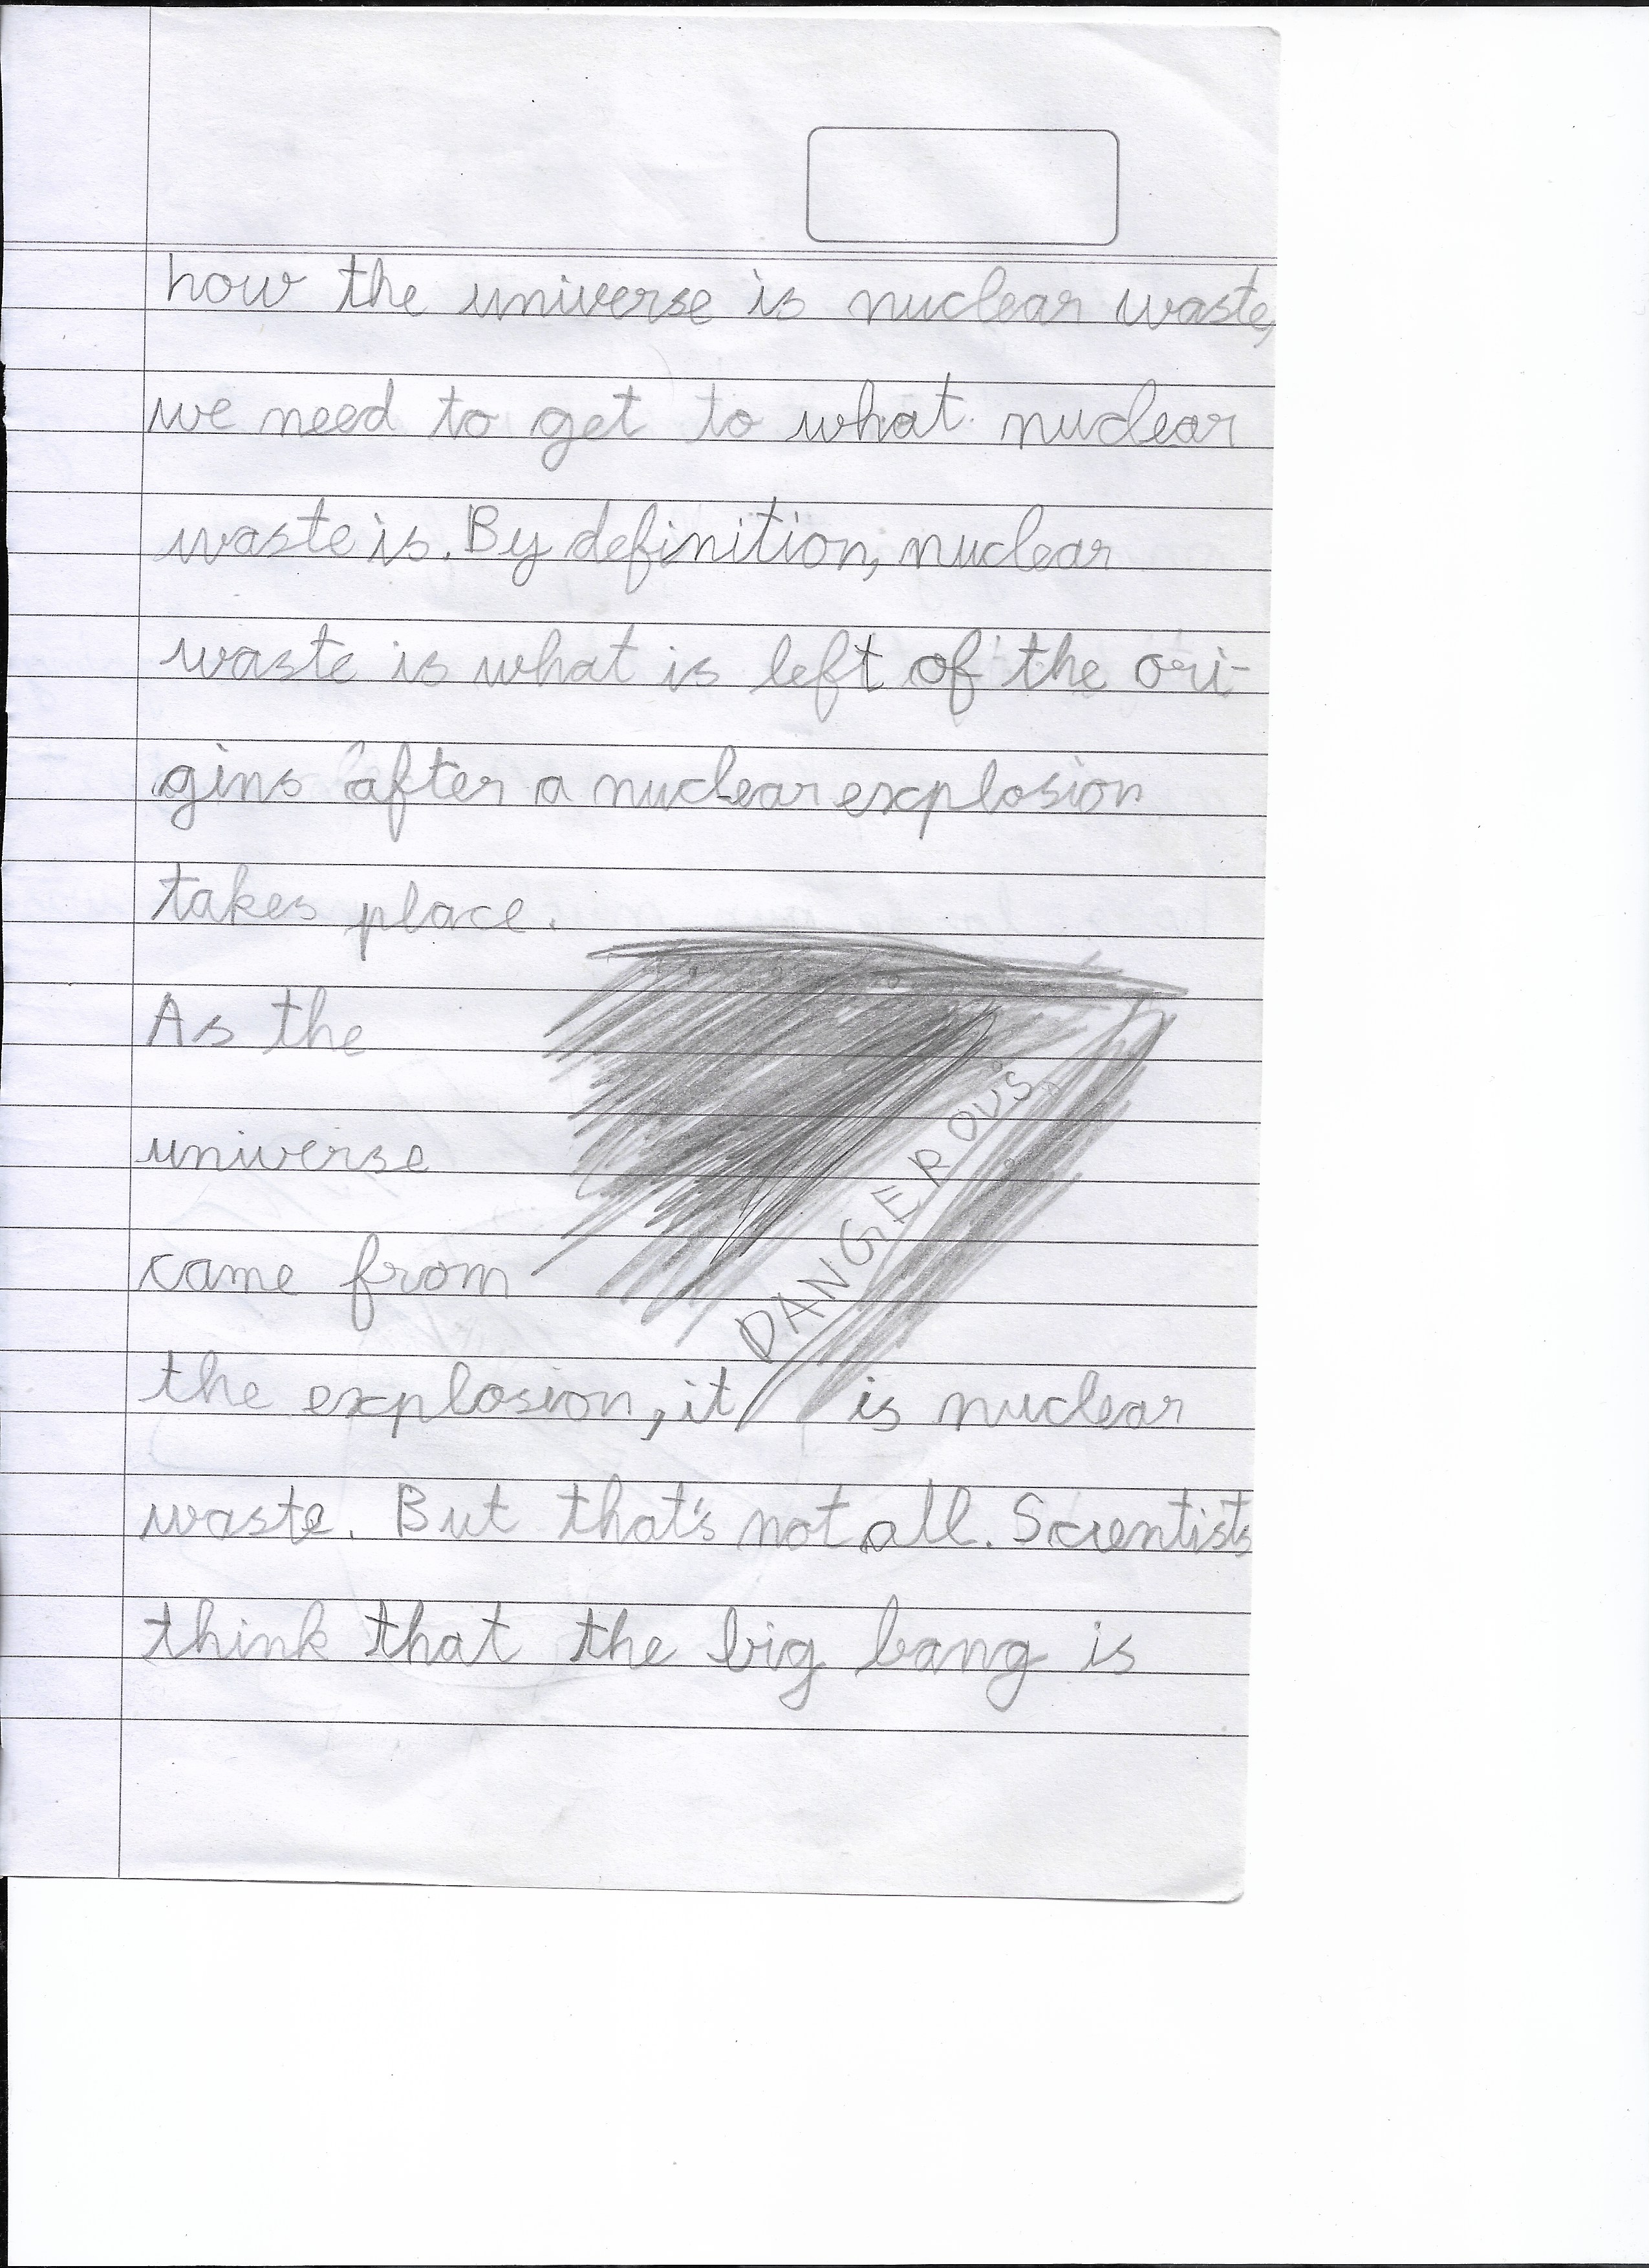 how the universe is nuclear waste,
we need to get to what nuclear
waste is. By definition, nuclear
waste is what is left of the ori-
gins after a nuclear explosion
takes place.
As the
universe
came from
DANGEROUS
the explosion, it is nuclear
waste. But that's not all. Scientists
think that the big bang is